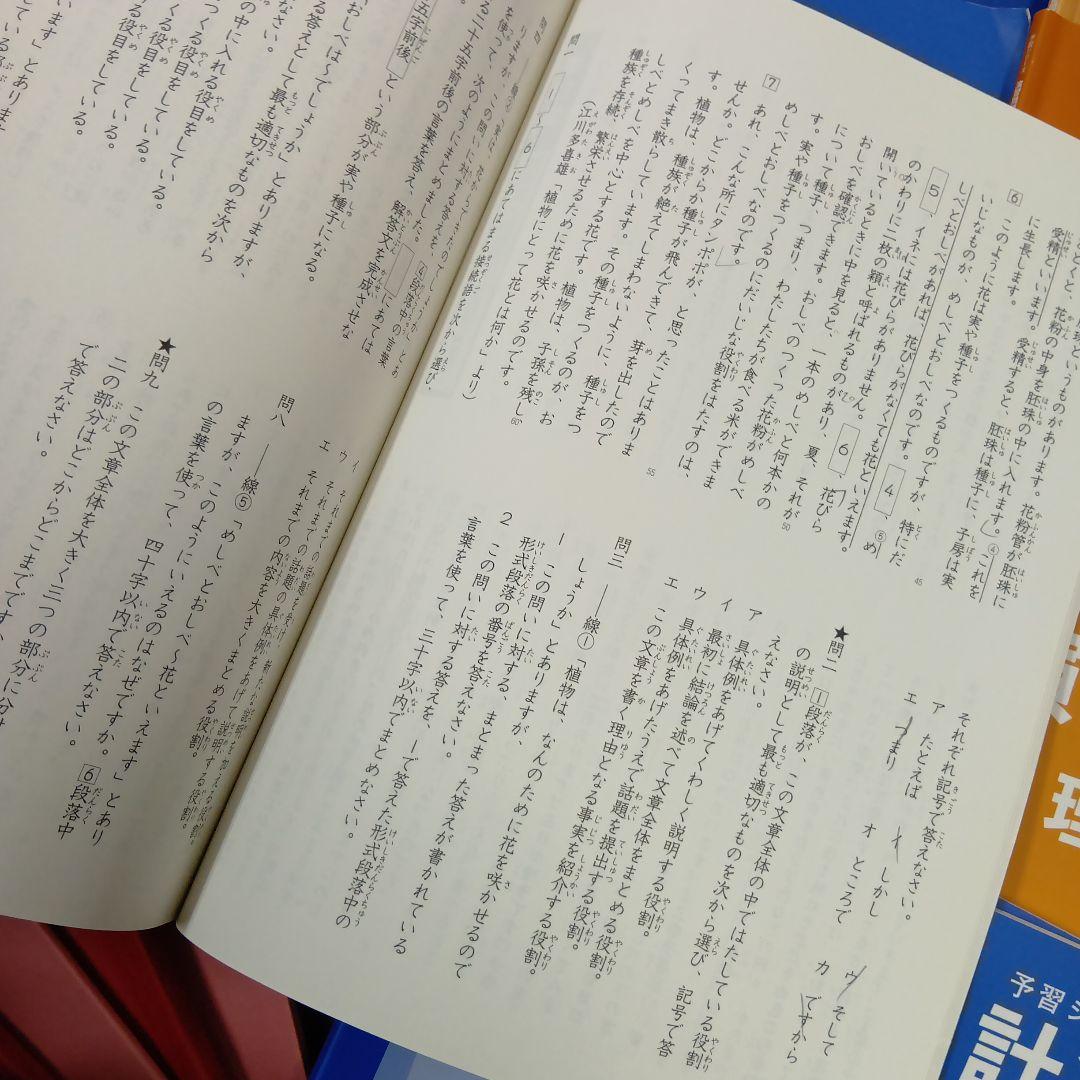 にとどくと、
受精といいます。受精すると、胚珠は種子に、子房は実
に生長します。
6
このように花は実や種子をつくるものですが、特にだ
いじなものが、めしべとおしべなのです。4、⑤め
しべとおしべがあれば、花びらがなくても花といえます。
5、イネには花びらがありません。6、花びら
のかわりに二枚の穎と呼ばれるものがあり、夏、それが
開いているときに中を見ると、一本のめしべと何本かの
おしべを確認できます。おしべのつくった花粉がめしべ
について種子、つまり、わたしたちが食べる米ができま
す。実や種子をつくるのにだいじな役割をはたすのは、
めしべとおしべなのです。
7
あれ、こんな所にタンポポが、と思ったことはありま
せんか。どこからか種子が飛んできて、芽を出したので
す。植物は、種族が絶えてしまわないように、種子をつ
くってまき散らしています。その種子をつくるのが、お
しべとめしべを中心とする花です。植物は、子孫を残し
種族を存続、繁栄させるために花を咲かせるのです。
(江川多喜雄「植物にとって花とは何か」より)
45
50
55
60
問一 1～6にあてはまる接続語を次から選び
それぞれ記号で答えなさい。
ア たとえば
イ しかし
ウ そして
エ つまり
オ ところで
カ ですから
★問二 1段落が、この文章全体の中ではたしている役割
の説明として最も適切なものを次から選び、記号で答
えなさい。
ア 具体例をあげてくわしく説明する役割。
イ 最初に結論を述べて文章全体をまとめる役割。
ウ 具体例をあげたうえで話題を提出する役割。
エ この文章を書く理由となる事実を紹介する役割。
問三 ――線①「植物は、なんのために花を咲かせるので
しょうか」とありますが、
1 この問いに対する、まとまった答えが書かれている
形式段落の番号を答えなさい。
2 この問いに対する答えを、1で答えた形式段落中の
言葉を使って、三十字以内でまとめなさい。
を使って、次のようにまとめました。にあては
る二十五字前後の言葉を答え、解答文を完成させな
五字前後という部分が実や種子になる。
おしべは～でしょうか」とありますが、
る答えとして最も適切なものを次から
なさい。
の中に入れる役目をしている。
つくる役目をしている。
る役目をしている。
イ
ウ
エ それまでの内容を大きくまとめる役割。
問八 ――線⑤「めしべとおしべ～花といえます」とあり
ますが、このようにいえるのはなぜですか。6段落中
の言葉を使って、四十字以内で答えなさい。
★問九 この文章全体を大きく三つの部分に分け
二の部分はどこからどこまでです
で答えなさい。
予習シ
計
理